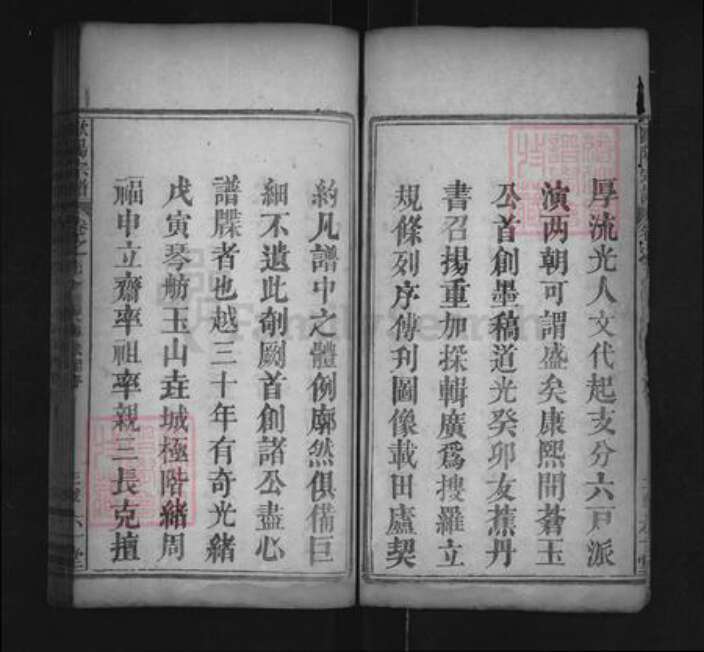 厚流光人文代起支分六戸派
演两朝可謂盛矣康熙間蒼玉
公首創墨稿道光癸卯友蕉丹
書召揚重加採輯廣爲搜羅立
規條列序傳刋圖像載田廬契
約凡譜中之體例廓然俱備巨
細不遺此剏剧首創諸公盡心
譜牒者也越三十年有奇光緒
戊寅琴舫玉山垚城極階緒周
福申立齋率祖率親三長克擅
歐陽宗譜
六一堂
FamilySearch